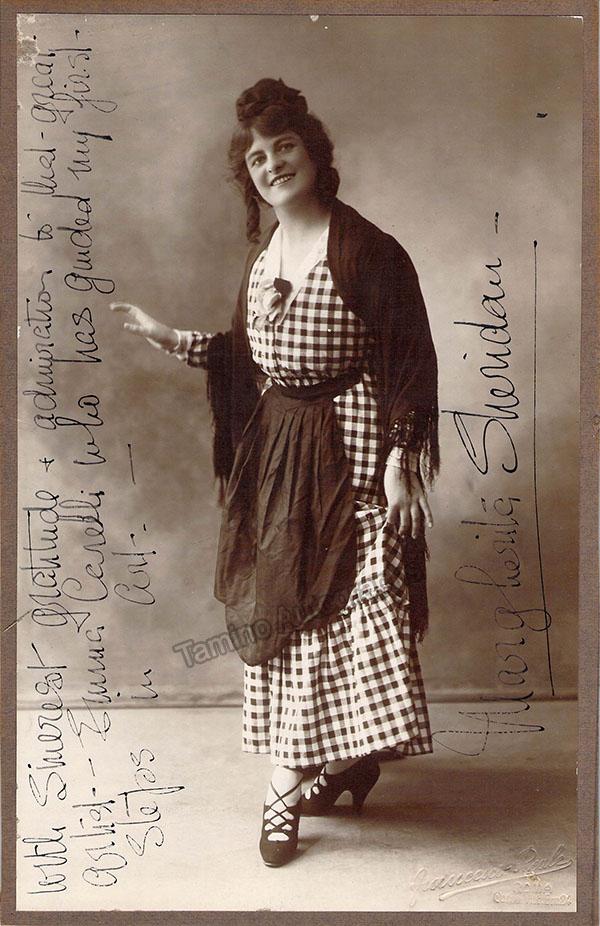 With Sincerest gratitude + admiration to that great
artist - Emma Carelli who has guided my first
steps in art. -
Margherita Sheridan -
Tamino Au
ROMA